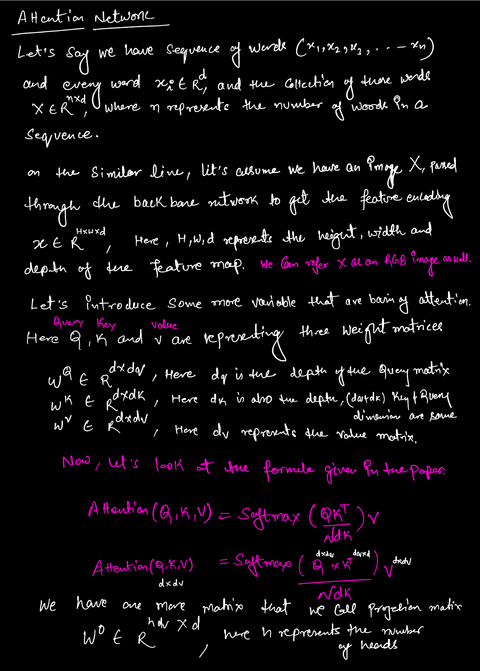 Attention Network
Let's say we have sequence of words (x₁,x₂,x₃, . . . - xₙ)
and every word xᵢ ∈ R^d, and the collection of those words
X ∈ R^{n×d}, where n represents the number of words in a
sequence.
on the similar line, lit's assume we have an image X, passed
through the back bone network to get the feature encoding
x ∈ R^{H×W×d}, Here, H,W,d represents the height, width and
depth of the feature map. We can refer X as an RGB image as well.
Let's introduce some more variable that are basis of attention.
Query Key Value
Here Q, K and V are representing three weight matrices
W^Q ∈ R^{d×dv}, Here dq is the depth of the Query matrix
W^K ∈ R^{d×dk}, Here dk is also the depth, (dq+dk) Key & Query
dimension are same
W^V ∈ R^{d×dv}, Here dv represents the value matrix.
Now, Let's look at the formula given in the paper.
Attention(Q,K,V) = Softmax (QKᵀ/√dk) V
Attention(Q,K,V) = Softmax (Q^{d×dv} × Kᵀ^{dv×d} / √dk) V^{d×dv}
d×dv
We have one more matrix that we call projection matrix
W^O ∈ R^{hdv × d}, here h represents the number
of heads